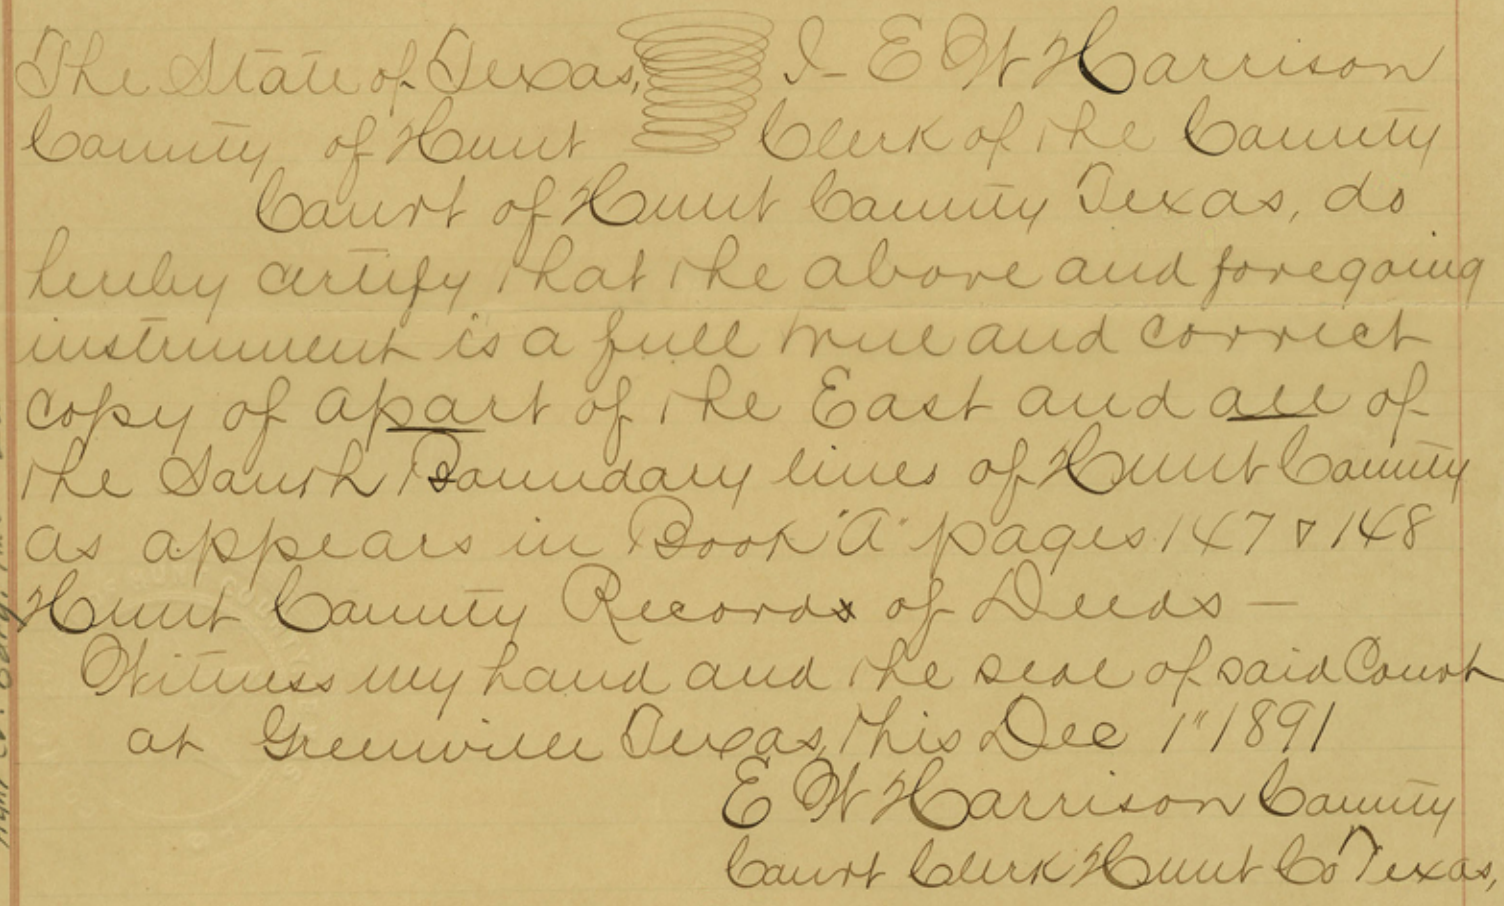 The State of Texas, I- E W Harrison
County of Hunt Clerk of the County
Court of Hunt County Texas, do
hereby certify that the above and foregoing
instrument is a full true and correct
copy of a part of the East and all of
the South Boundary lines of Hunt County
as appears in Book "A" pages 147 & 148
Hunt County Records of Deeds —
Witness my hand and the seal of said Court
at Greenville Texas, this Dec 1" 1891
E W Harrison County
Court Clerk Hunt Co Texas,